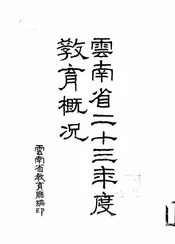 雲南省二十三年度
教育概况
雲南省教育廳編印